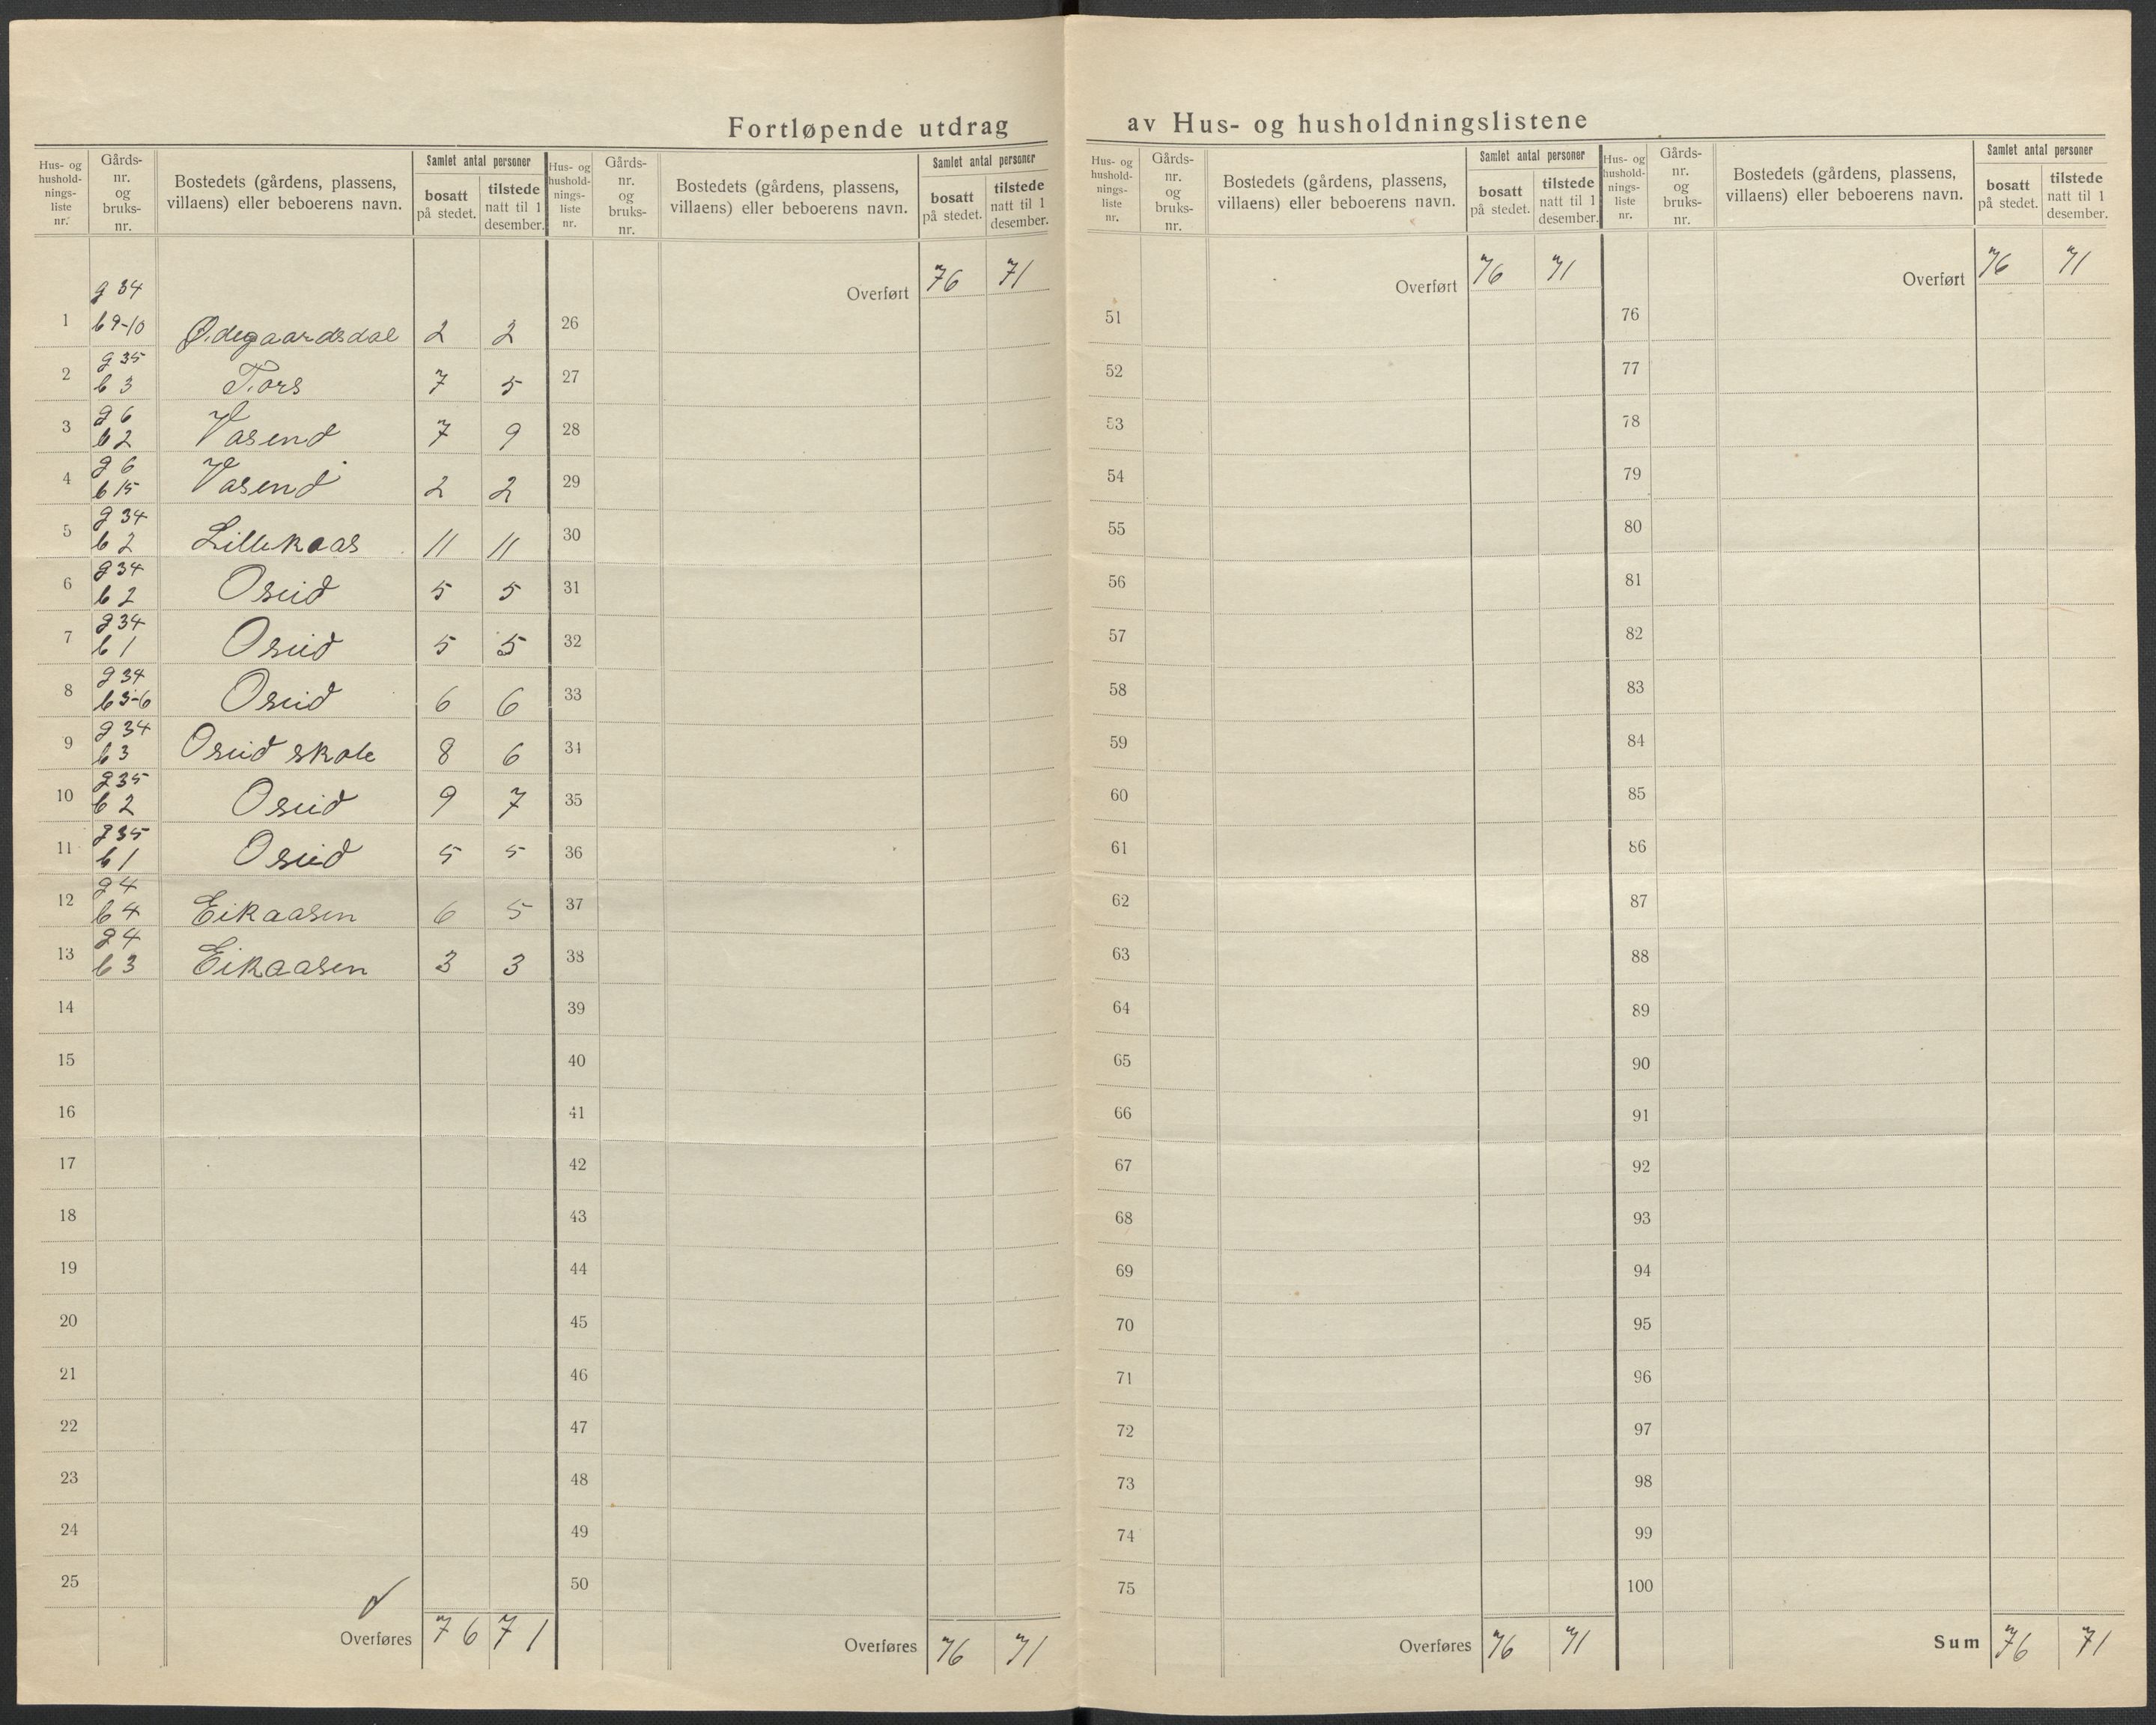 Fortløpende utdrag av Hus- og husholdningslistene
Hus- og hushold-nings-liste nr. | Gårds-nr. og bruks-nr. | Bostedets (gårdens, plassens, villaens) eller beboerens navn. | Samlet antal personer | bosatt på stedet. | tilstede natt til 1 desember.
1 | g 34 b 9-10 | Ødegaardsdal | 2 | 2
2 | g 35 b 3 | Fors | 7 | 5
3 | g 6 b 2 | Vasend | 7 | 9
4 | g 6 b 15 | Vasend | 2 | 2
5 | g 34 b 2 | Lillekaas | 11 | 11
6 | g 34 b 2 | Oseid | 5 | 5
7 | g 34 b 1 | Oseid | 5 | 5
8 | g 34 b 3-6 | Oseid | 6 | 6
9 | g 34 b 3 | Oseid skole | 8 | 6
10 | g 35 b 2 | Oseid | 9 | 7
11 | g 35 b 1 | Oseid | 5 | 5
12 | g 4 b 4 | Eikaasen | 6 | 5
13 | g 4 b 3 | Eikaasen | 3 | 3
14
15
16
17
18
19
20
21
22
23
24
25
Overføres | 76 | 71
Hus- og hushold-nings-liste nr. | Gårds-nr. og bruks-nr. | Bostedets (gårdens, plassens, villaens) eller beboerens navn. | Samlet antal personer | bosatt på stedet. | tilstede natt til 1 desember.
Overført | 76 | 71
26
27
28
29
30
31
32
33
34
35
36
37
38
39
40
41
42
43
44
45
46
47
48
49
50
Overføres | 76 | 71
Hus- og hushold-nings-liste nr. | Gårds-nr. og bruks-nr. | Bostedets (gårdens, plassens, villaens) eller beboerens navn. | Samlet antal personer | bosatt på stedet. | tilstede natt til 1 desember.
Overført | 76 | 71
51
52
53
54
55
56
57
58
59
60
61
62
63
64
65
66
67
68
69
70
71
72
73
74
75
Overføres | 76 | 71
Hus- og hushold-nings-liste nr. | Gårds-nr. og bruks-nr. | Bostedets (gårdens, plassens, villaens) eller beboerens navn. | Samlet antal personer | bosatt på stedet. | tilstede natt til 1 desember.
Overført | 76 | 71
76
77
78
79
80
81
82
83
84
85
86
87
88
89
90
91
92
93
94
95
96
97
98
99
100
Sum | 76 | 71